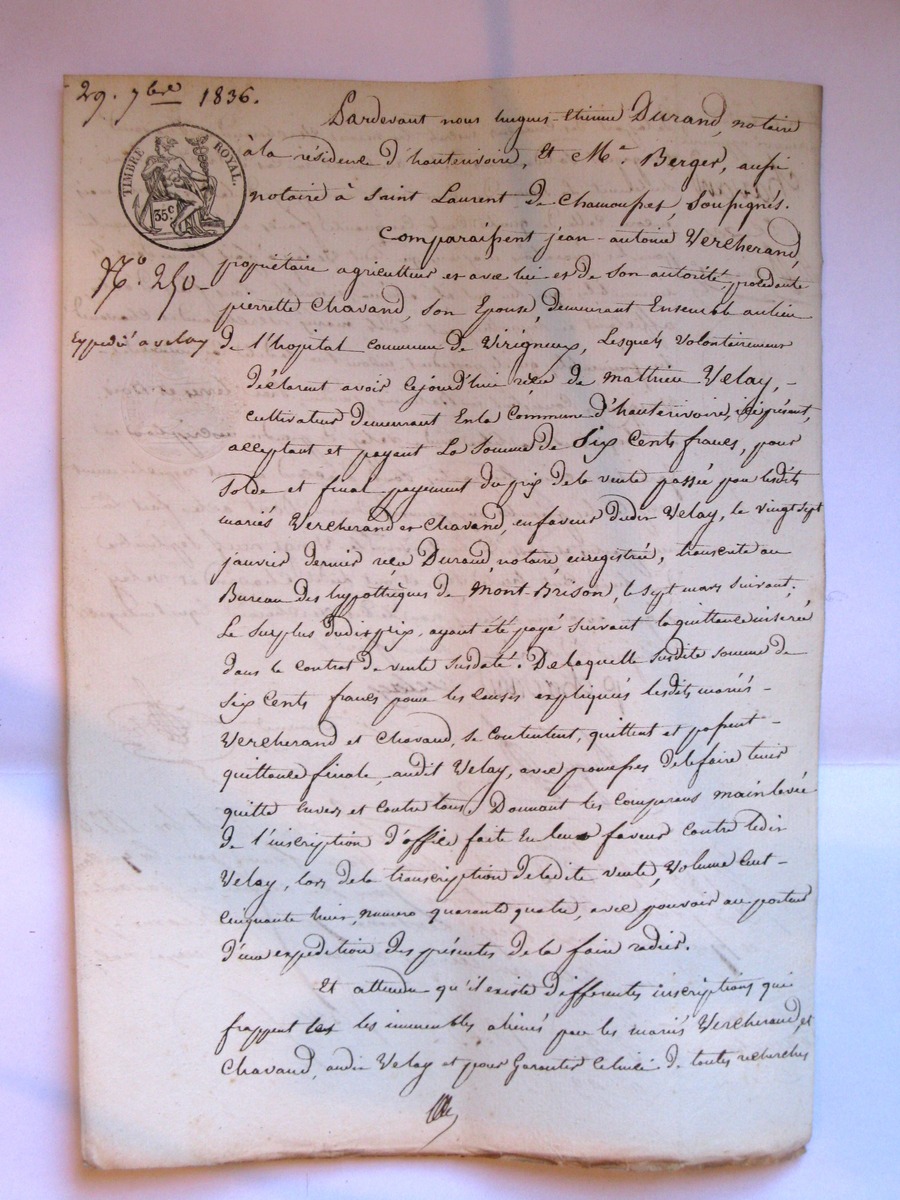 29. 7bre 1836.
TIMBRE ROYAL.
35c
N° 250
Expédié a velay
Pardevant nous hugues-Etienne Durand, notaire
à la résidence d'hauterivoire, et Me. Berger, aussi
notaire à Saint Laurent de Chamousset, soussignés.
Comparaissent jean-antoine Vercherand,
propriétaire agriculteur et avec lui et de son autorité, procédante
pierrette Chavand, son Epouse, demeurant Ensemble au lieu
de l'hopital commune de Virigneux, Lesquels volontairement
déclarent avoir cejourd'hui reçu de mathieu Velay, -
cultivateur demeurant En la Commune d'hauterivoire, ici présent,
acceptant et payant La Somme de Six Cents francs, pour
solde et final payement du prix de la vente passée par lesdits
mariés Vercherand et Chavand, en faveur dudit Velay, le vingt sept
janvier dernier reçu Durand, notaire, enregistrée, transcrite au
Bureau des hypothèques de Mont-Brison, le sept mars suivant;
Le surplus dudit prix, ayant été payé suivant la quittance insérée
dans le contrat de vente susdaté. De laquelle susdite somme de
six cents francs pour les causes expliquées lesdits mariés -
Vercherand et Chavand, se contentent, quittent et passent -
quittance finale, audit Velay, avec promesses de le faire tenir
quitte envers et contre tous. Donnant les comparans mainlevée
de l'inscription d'office faite en leur faveur contre ledit
Velay, lors de la transcription de ladite vente, Volume Cent -
cinquante huit, numero quarante quatre, avec pouvoir au porteur
d'une expedition des présentes de la faire radier.
Et attendu qu'il existe differentes inscriptions qui
frappent les immeubles aliénés par les mariés Vercherand, et
Chavand, audit Velay et pour Garantir Celuici de toutes recherches